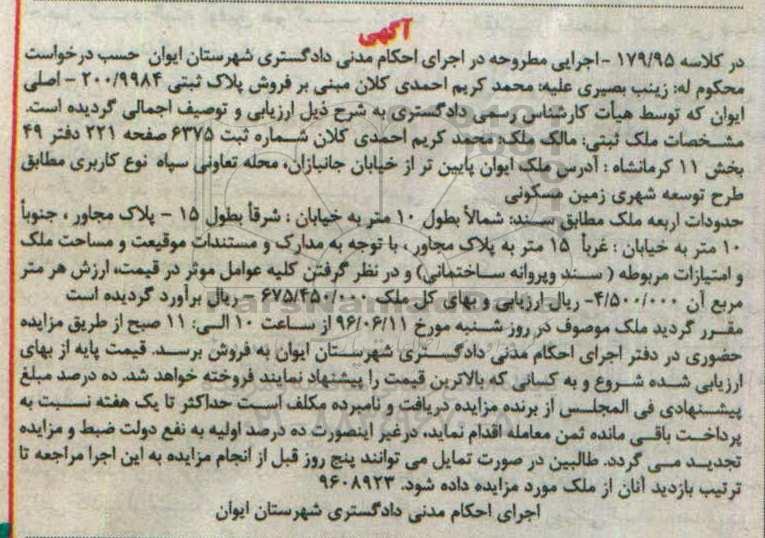 آگهی
در کلاسه ۱۷۹/۹۵ - اجرایی مطروحه در اجرای احکام مدنی دادگستری شهرستان ایوان حسب درخواست
محکوم له: زینب بصیری علیه: محمد کریم احمدی کلان مبنی بر فروش پلاک ثبتی ۲۰۰/۹۹۸۴ - اصلی
ایوان که توسط هیأت کارشناس رسمی دادگستری به شرح ذیل ارزیابی و توصیف اجمالی گردیده است.
مشخصات ملک ثبتی: مالک ملک: محمد کریم احمدی کلان شماره ثبت ۶۳۷۵ صفحه ۲۲۱ دفتر ۴۹
بخش ۱۱ کرمانشاه : آدرس ملک ایوان پایین تر از خیابان جانبازان، محله تعاونی سپاه نوع کاربری مطابق
طرح توسعه شهری زمین مسکونی
حدودات اربعه ملک مطابق سند: شمالأ بطول ۱۰ متر به خیابان : شرقأ بطول ۱۵ - پلاک مجاور ، جنوبأ
۱۰ متر به خیابان : غربأ ۱۵ متر به پلاک مجاور ، با توجه به مدارک و مستندات موقیعت و مساحت ملک
و امتیازات مربوطه ( سند وپروانه ساختمانی) و در نظر گرفتن کلیه عوامل موثر در قیمت، ارزش هر متر
مربع آن ۴/۵۰۰/۰۰۰- ریال ارزیابی و بهای کل ملک ۶۷۵/۴۵۰/۰۰۰ - ریال برآورد گردیده است
مقرر گردید ملک موصوف در روز شنبه مورخ ۹۶/۰۶/۱۱ از ساعت ۱۰ الی: ۱۱ صبح از طریق مزایده
حضوری در دفتر اجرای احکام مدنی دادگستری شهرستان ایوان به فروش برسد. قیمت پایه از بهای
ارزیابی شده شروع و به کسانی که بالاترین قیمت را پیشنهاد نمایند فروخته خواهد شد. ده درصد مبلغ
پیشنهادی فی المجلس از برنده مزایده دریافت و نامبرده مکلف است حداکثر تا یک هفته نسبت به
پرداخت باقی مانده ثمن معامله اقدام نماید، درغیر اینصورت ده درصد اولیه به نفع دولت ضبط و مزایده
تجدید می گردد. طالبین در صورت تمایل می توانند پنج روز قبل از انجام مزایده به این اجرا مراجعه تا
ترتیب بازدید آنان از ملک مورد مزایده داده شود. ۹۶۰۸۹۲۳
اجرای احکام مدنی دادگستری شهرستان ایوان